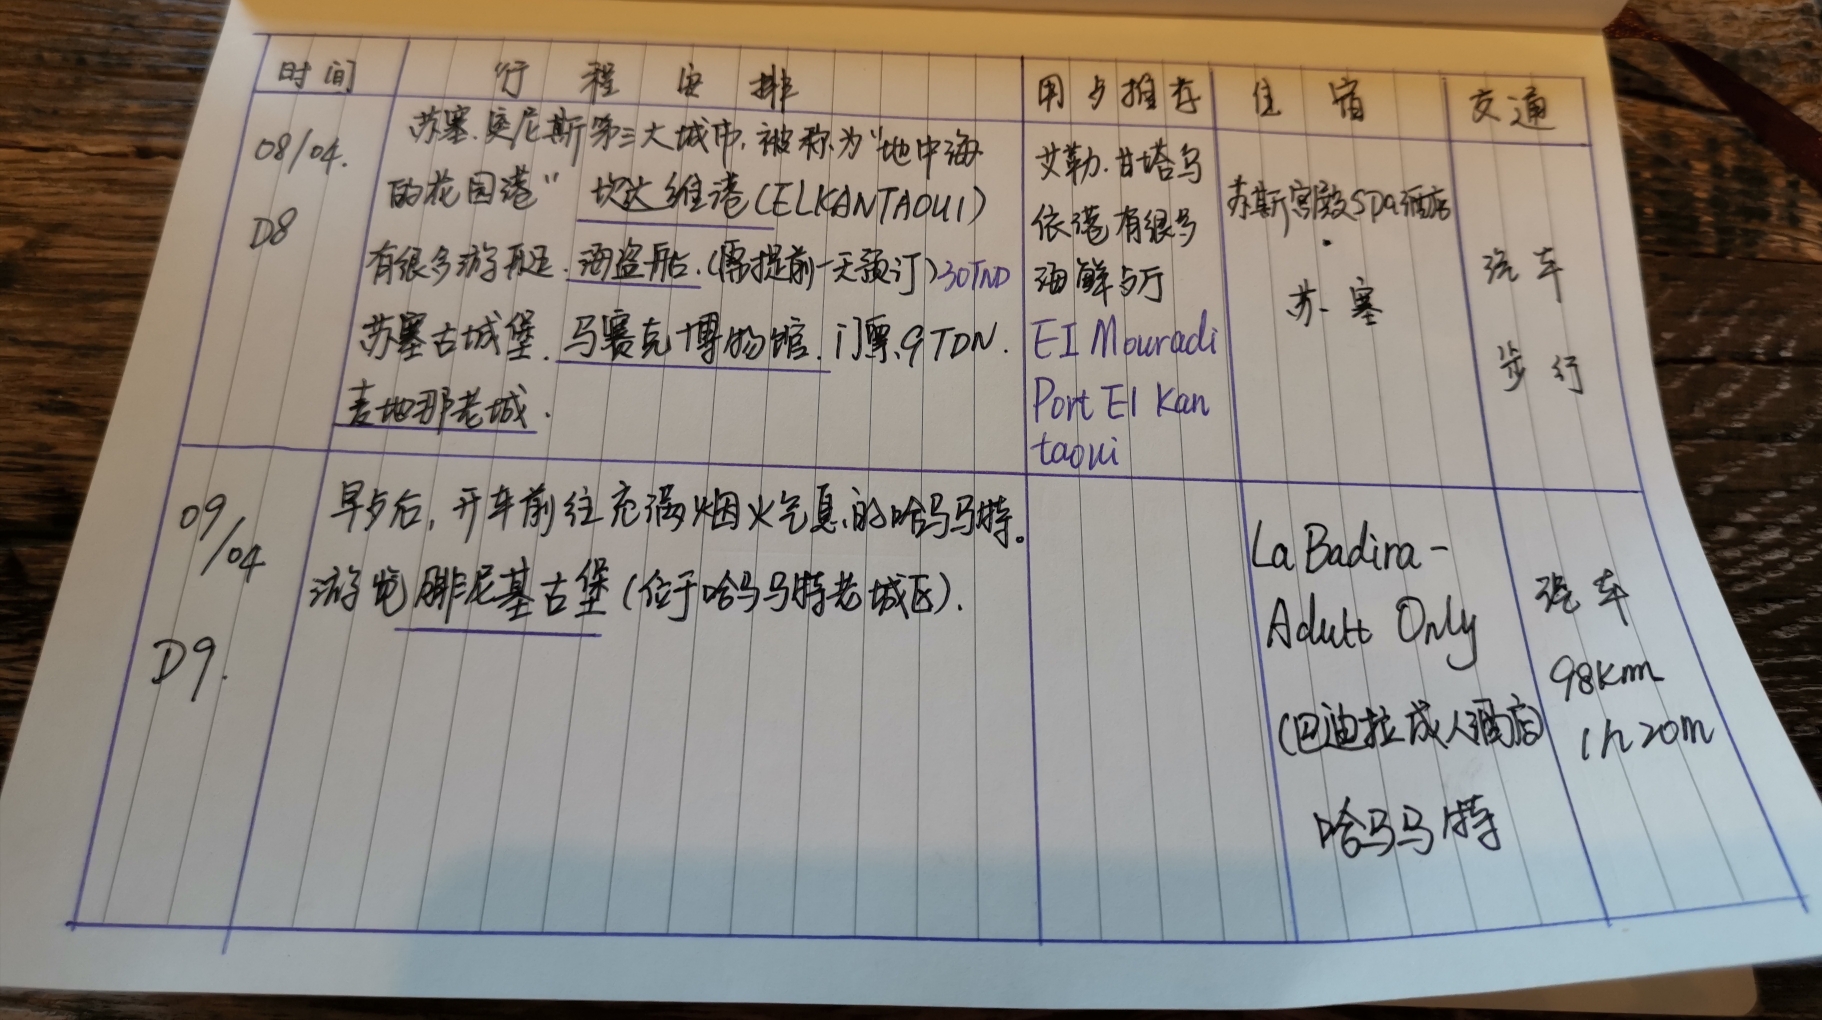 时间 行程安排 用歺推荐 住宿 交通
08/04.
D8
苏塞.突尼斯第三大城市.被称为"地中海
的花园港" 坎达维港(ELKANTAOUI)
有很多游艇.海盗船.(需提前一天预订)30TND
苏塞古城堡.马赛克博物馆.门票.9TDN.
麦地那老城.
艾勒.甘塔乌
依港有很多
海鲜歺厅
EI Mouradi
Port El Kan
taoui
苏斯宫殿Spa酒店
苏塞
汽车
步行
09/04
D9.
早歺后,开车前往充满烟火气息的哈马马特。
游览腓尼基古堡(位于哈马马特老城区).
La Badira-
Adult Only
(巴迪拉成人酒店)
哈马马特
汽车
98Km
1h20m